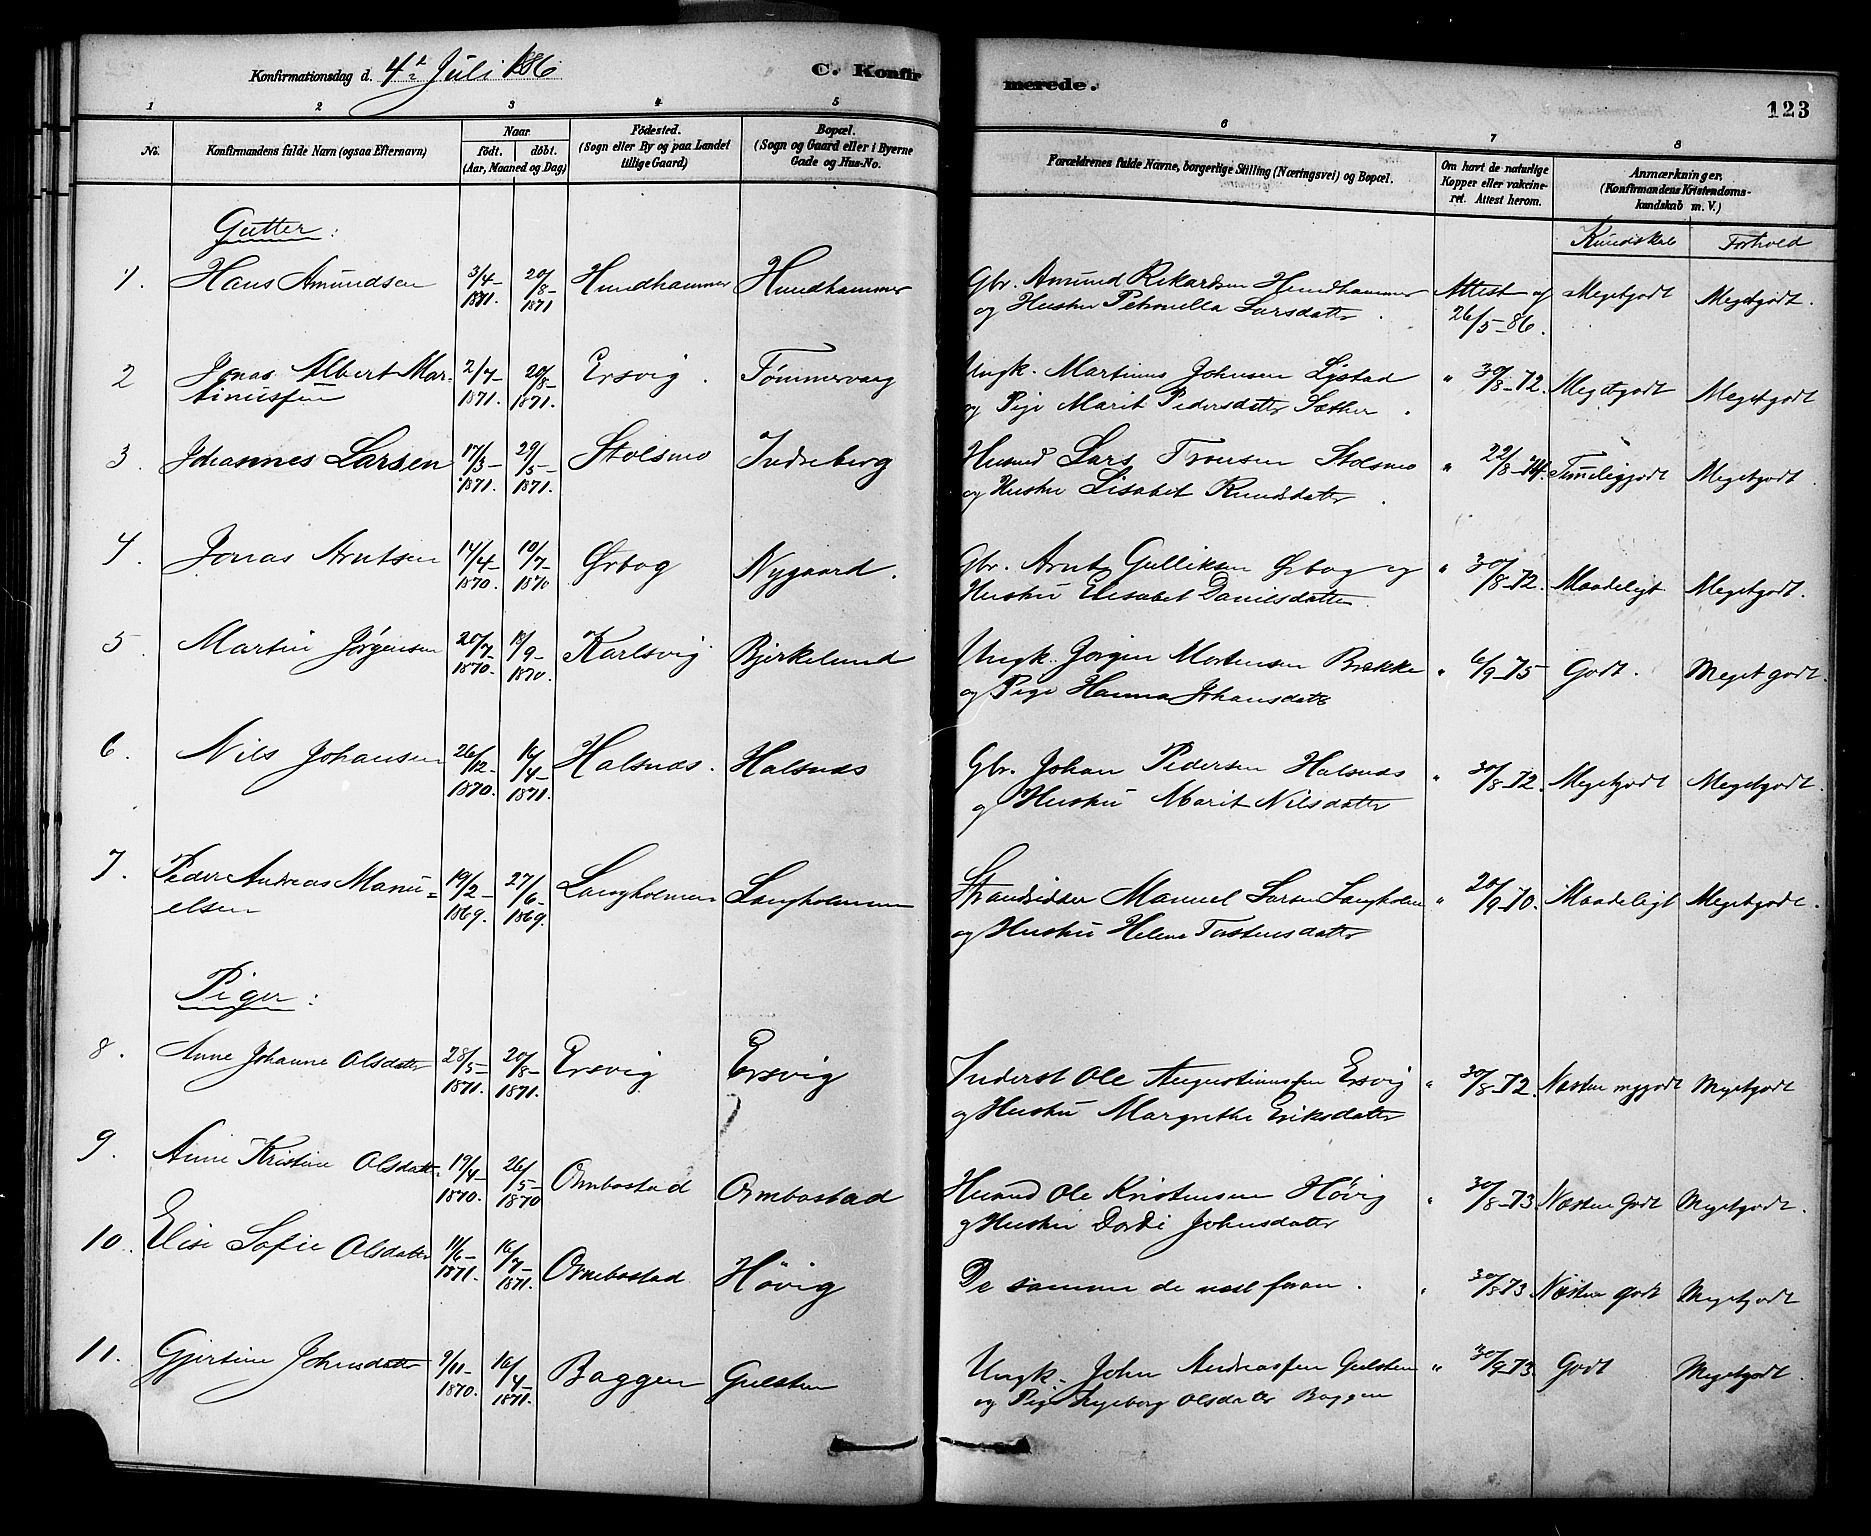 Konfirmationsdag d. 4de Juli 1886
C. Konfirmerede.
123
1 2 3 4 5 6 7 8
No.
Konfirmandens fulde Navn (ogsaa Efternavn)
Naar
født. døbt.
(Aar, Maaned og Dag)
Fødested.
(Sogn eller By og paa Landet
tillige Gaard)
Bopæl.
(Sogn og Gaard eller i Byerne
Gade og Hus-No.
Forældrenes fulde Navne, borgerlige Stilling (Næringsvei) og Bopæl.
Om havt de naturlige
Kopper eller vakcine-
ret. Attest herom.
Anmærkninger.
(Konfirmandens Kristendoms-
kundskab m. V.)
Kundskab Forhold
Gutter:
1. Hans Amundsen 3/4-1871. 20/8-1871 Hundhammer Hundhammer Gbr. Amund Rikardsen Hundhammer Attest af 26/5-86. Megetgodt Megetgodt.
og Hustru Petronella Larsdatter.
2 Jonas Albert Mar- 2/7-1871. 20/8-1871. Ersvig. Tømmervaag Ungk. Martinus Johnsen Lystad " 30/8-72. Megetgodt Megetgodt
tinussen og Pige Marit Pedersdatter Sæther.
3. Johannes Larsen 17/3-1871. 29/5-1871. Stolsmo Indreberg Husmd Lars Tronsen Stolsmo " 22/8-74. Temeligodt Megetgodt.
og Hustru Lisabet Knudsdatter.
4. Jonas Arntsen 14/4-1870. 10/7-1870 Ørbog Nygaard. Gbr. Arnt Gulliksen Ørbog og " 30/8-72. Maadeligt Megetgodt.
Hustru Elisabet Danielsdatter.
5. Martin Jørgensen 20/7-1870. 18/9-1870. Karlsvig Bjerkelund Ungk. Jørgen Mortensen Brække " 6/9-75 Godt. Meget godt.
og Pige Hanna Johansdatter
6. Nils Johansen 26/12-1870. 16/4-1871. Halsnæs. Halsnæs Gbr. Johan Pedersen Halsnæs " 30/8-72. Megetgodt Megetgodt.
og Hustru Marit Nilsdatter
7. Peder Andreas Manu= 19/2-1869. 27/6-1869. Langholmen Langholmen Strandsidder Manuel Larsen Langholmen " 20/9-70. Maadeligt Megetgodt.
elsen og Hustru Helene Torstensdatter
Piger:
8. Anne Johanne Olsdatter 28/5-1871. 20/8-1871. Ersvig Ersvig Inderst Ole Augustinussen Ersvig " 30/8-72. Næsten mgodt Megetgodt
og Hustru Margrethe Eriksdatter
9. Anne Kristine Olsdatt. 19/4-1870. 26/5-1870 Ornbostad Ornbostad Husmd Ole Kristensen Høvig " 30/8-73 Næsten Godt Megetgodt.
og Hustru Dordi Johnsdatter
10. Elise Sofie Olsdatter 11/6-1871. 16/7-1871. Ornbostad Høvig De samme de næst foran. " 30/8-73 Næsten godt Megetgodt
11. Gjertine Johnsdatter 9/11-1870. 16/4-1871. Baggen Gulsten Ungk. John Andreassen Gulsten " 30/9-73. Godt Megetgodt.
og Pige Ingeborg Olsdatter Baggen